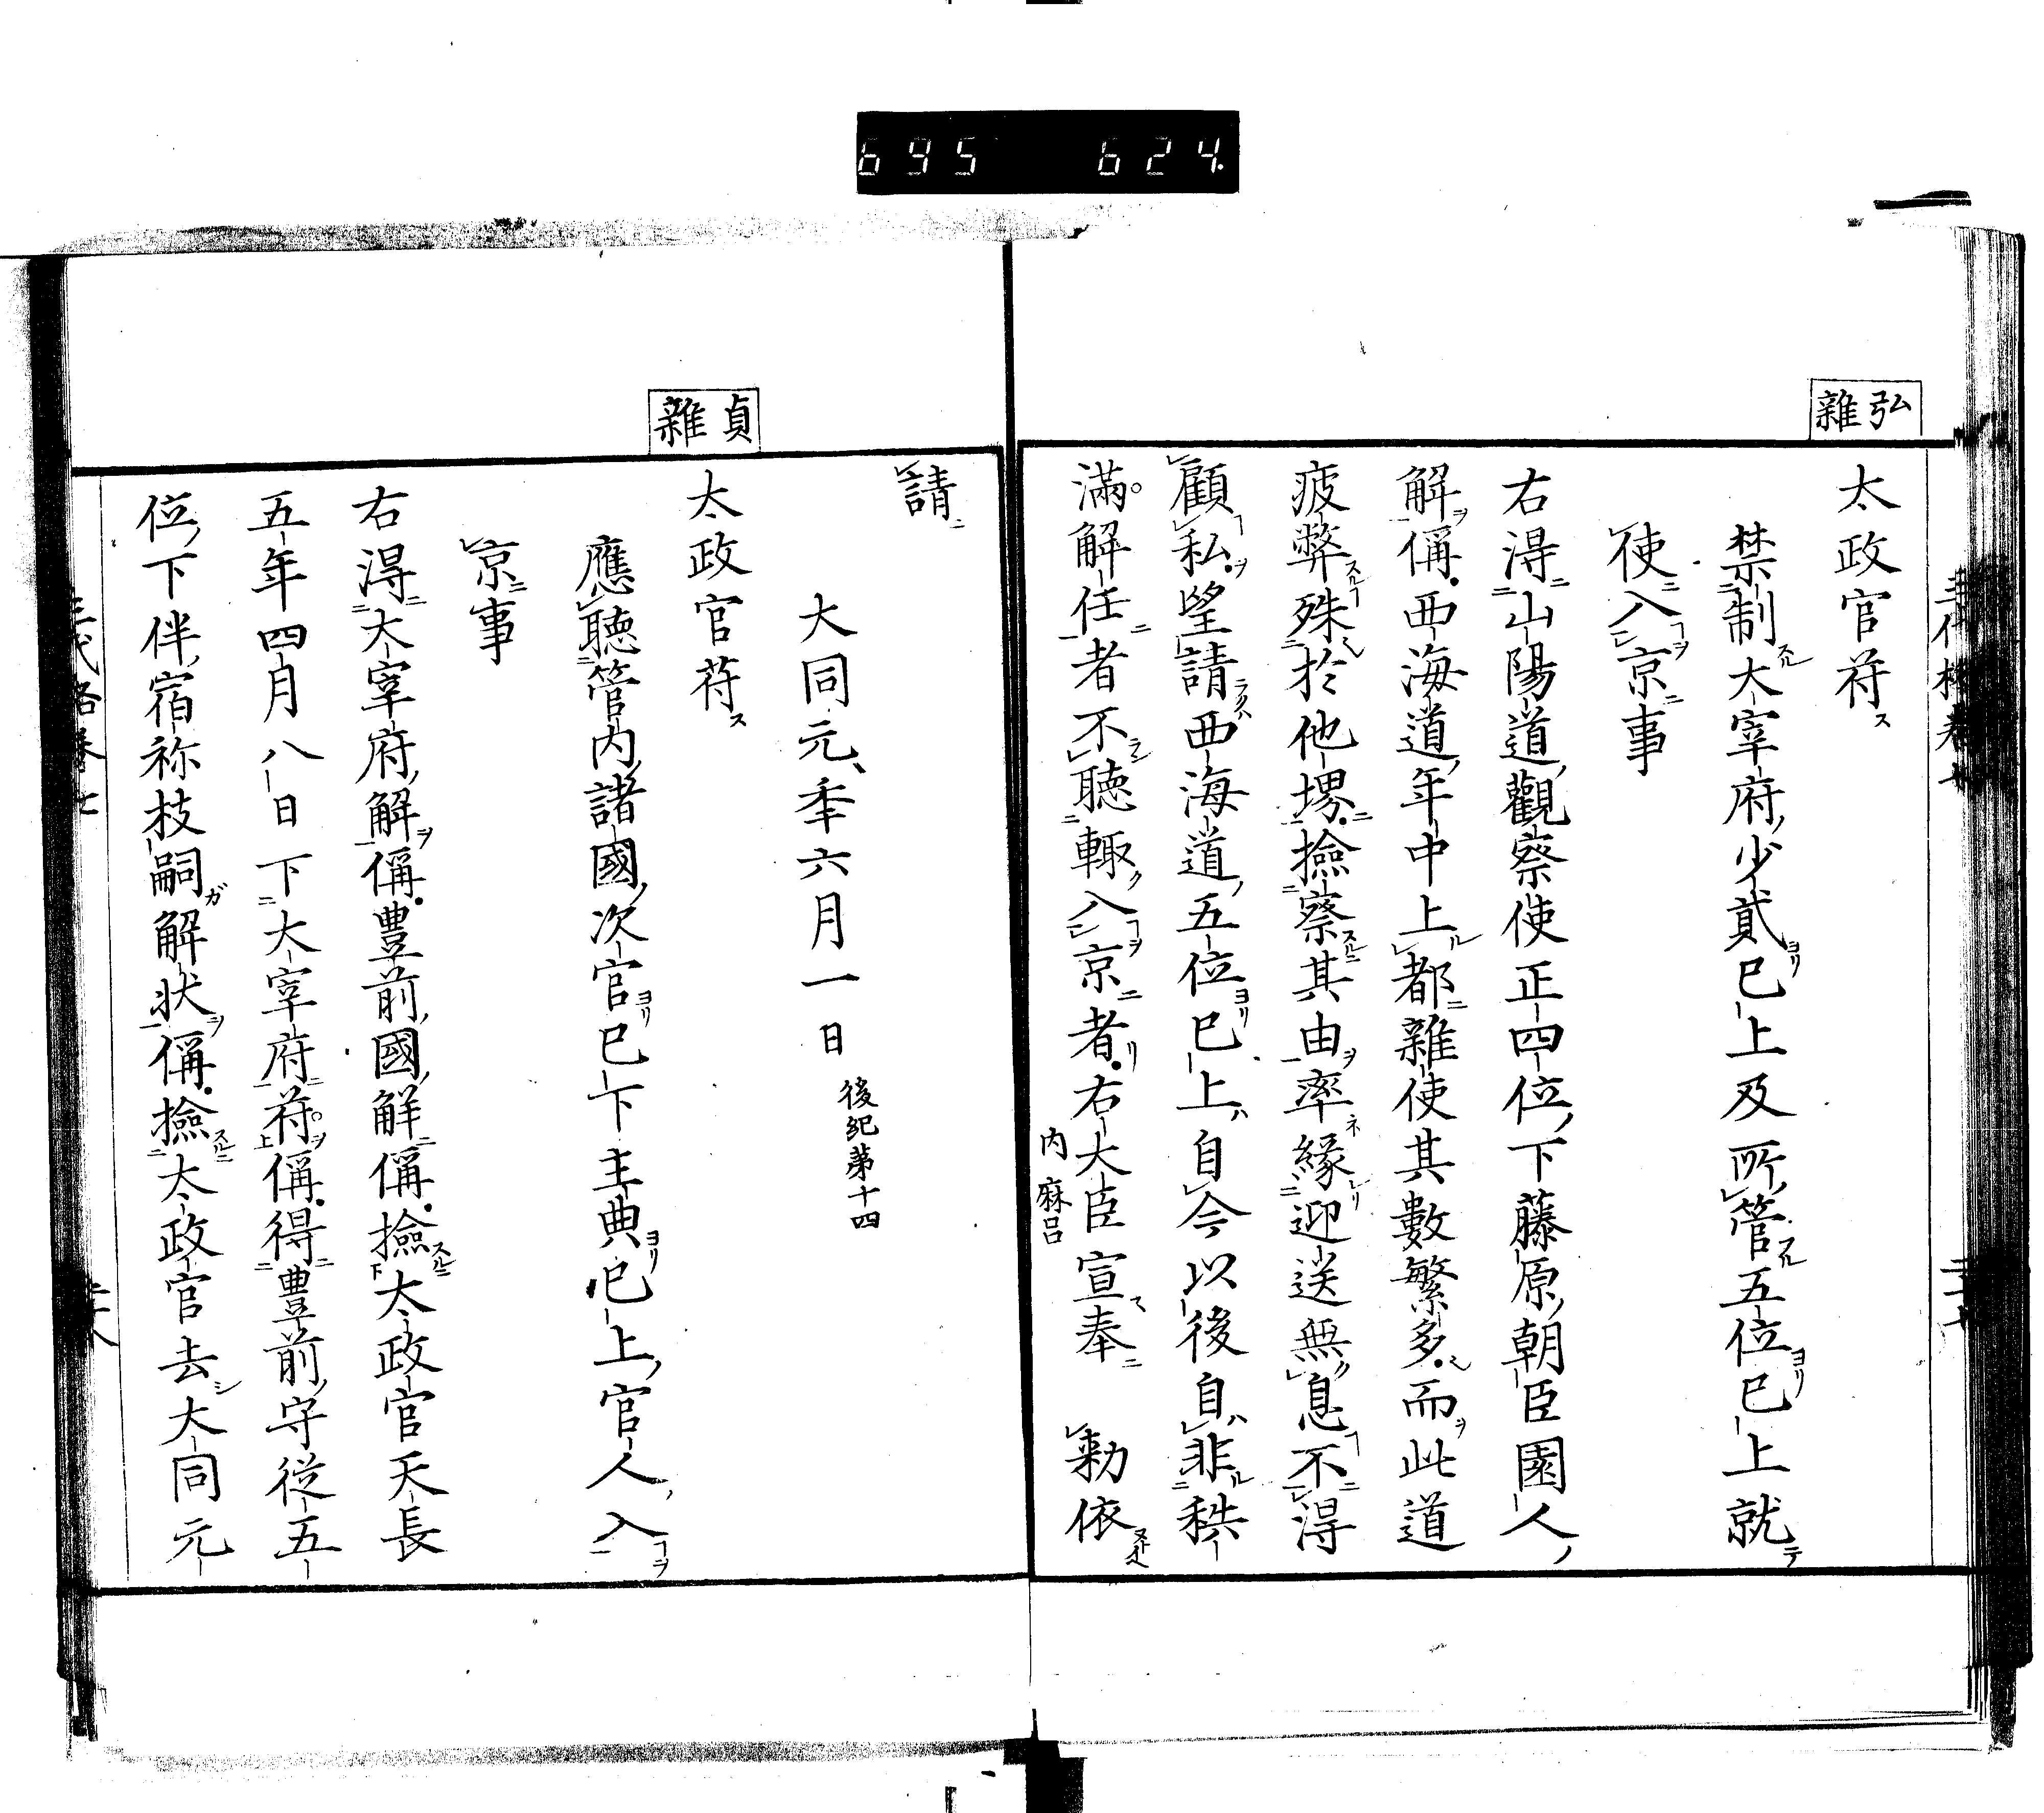 695 624.
弘雜
太政官符ス
禁制大宰府少貳已上及所管五位已上就
使入京事
右得山陽道觀察使正四位下藤原朝臣園人
解偁西海道年中上都雜使其數繁多而此道
疲弊殊於他堺撿察其由率緣迎送無息不得
顧私望請西海道五位已上自今以後自非秩
滿解任者不聽輙入京者右大臣宣奉　勅依
内麻呂
請
大同元年六月一日 後紀第十四
貞雜
太政官符ス
應聽管内諸國次官已下主典已上官人入
京事
右得大宰府解偁豊前國解偁撿太政官天長
五年四月八日下大宰府符偁得豊前守從五
位下伴宿祢枝嗣解状偁撿太政官去大同元